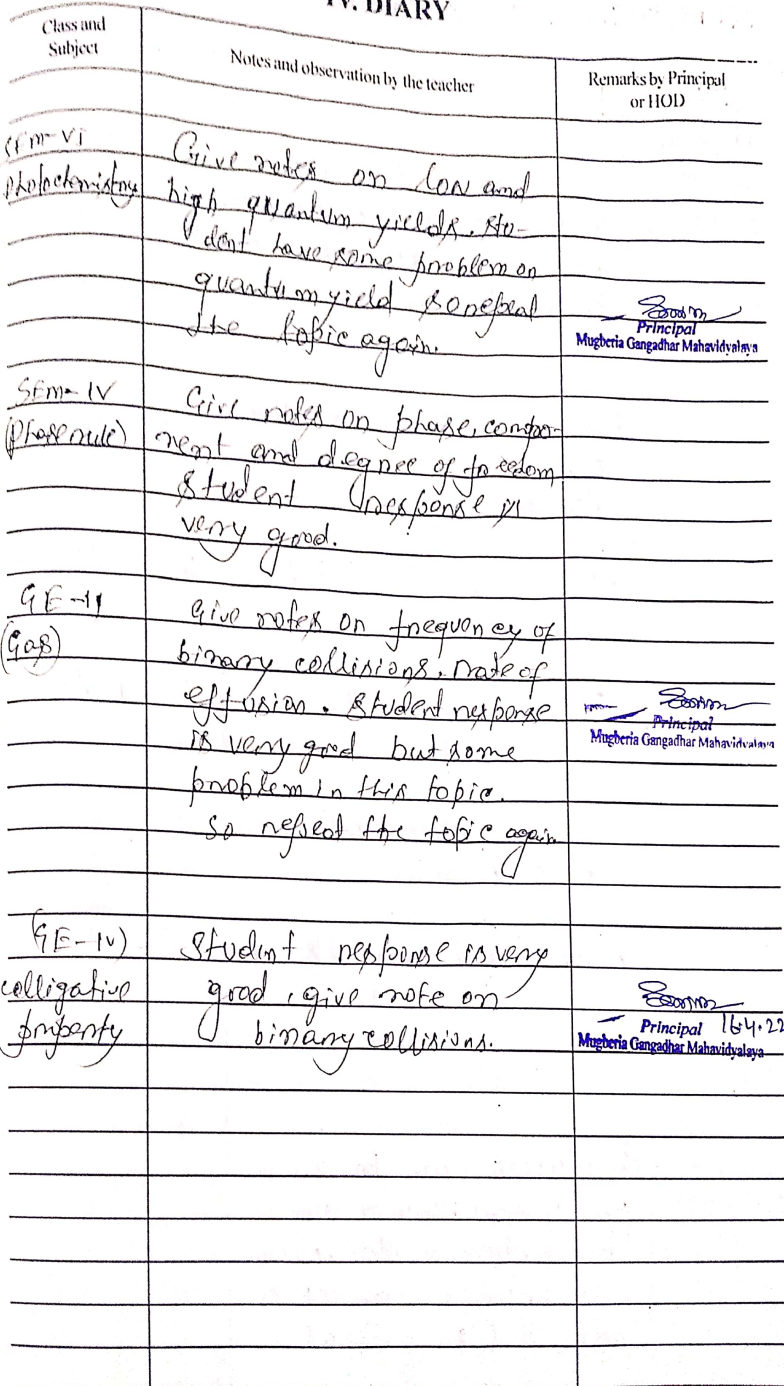 IV. DIARY
Class and
Subject
Notes and observation by the teacher
Remarks by Principal
or HOD
SEM-VI
Photochemistry
Give notes on low and
high quantum yields. Stu-
dent have some problem on
quantum yield so repeat
the topic again.
Principal
Mugberia Gangadhar Mahavidyalaya
SEM-IV
(Phase rule)
Give notes on phase, compo-
nent and degree of freedom
student response is
very good.
GE-II
(Gas)
Give notes on frequency of
binary collisions, rate of
effusion. Student response
is very good but some
problem in this topic.
So repeat the topic again.
Principal
Mugberia Gangadhar Mahavidyalaya
(GE-IV)
colligative
property
Student response is very
good, give note on
binary collisions.
Principal 16.4.22
Mugberia Gangadhar Mahavidyalaya